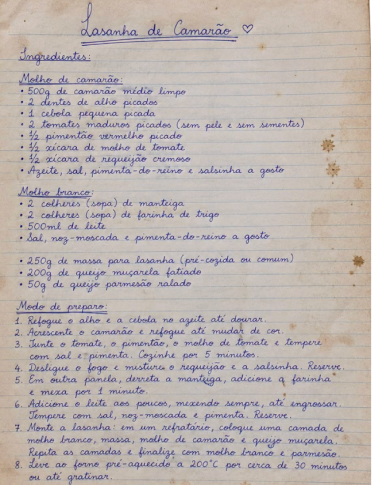 Lasanha de Camarão ♡
Ingredientes:
Molho de camarão:
• 500g de camarão médio limpo
• 2 dentes de alho picados
• 1 cebola pequena picada
• 2 tomates maduros picados (sem pele e sem sementes)
• ½ pimentão vermelho picado
• ½ xícara de molho de tomate
• ½ xícara de requeijão cremoso
• Azeite, sal, pimenta-do-reino e salsinha a gosto
Molho branco:
• 2 colheres (sopa) de manteiga
• 2 colheres (sopa) de farinha de trigo
• 500ml de leite
• Sal, noz-moscada e pimenta-do-reino a gosto
• 250g de massa para lasanha (pré-cozida ou comum)
• 200g de queijo muçarela fatiado
• 50g de queijo parmesão ralado
Modo de preparo:
1. Refogue o alho e a cebola no azeite até dourar.
2. Acrescente o camarão e refogue até mudar de cor.
3. Junte o tomate, o pimentão, o molho de tomate e tempere
com sal e pimenta. Cozinhe por 5 minutos.
4. Desligue o fogo e misture o requeijão e a salsinha. Reserve.
5. Em outra panela, derreta a manteiga, adicione a farinha
e mexa por 1 minuto.
6. Adicione o leite aos poucos, mexendo sempre, até engrossar.
Tempere com sal, noz-moscada e pimenta. Reserve.
7. Monte a lasanha: em um refratário, coloque uma camada de
molho branco, massa, molho de camarão e queijo muçarela.
Repita as camadas e finalize com molho branco e parmesão.
8. Leve ao forno pré-aquecido a 200°C por cerca de 30 minutos
ou até gratinar.